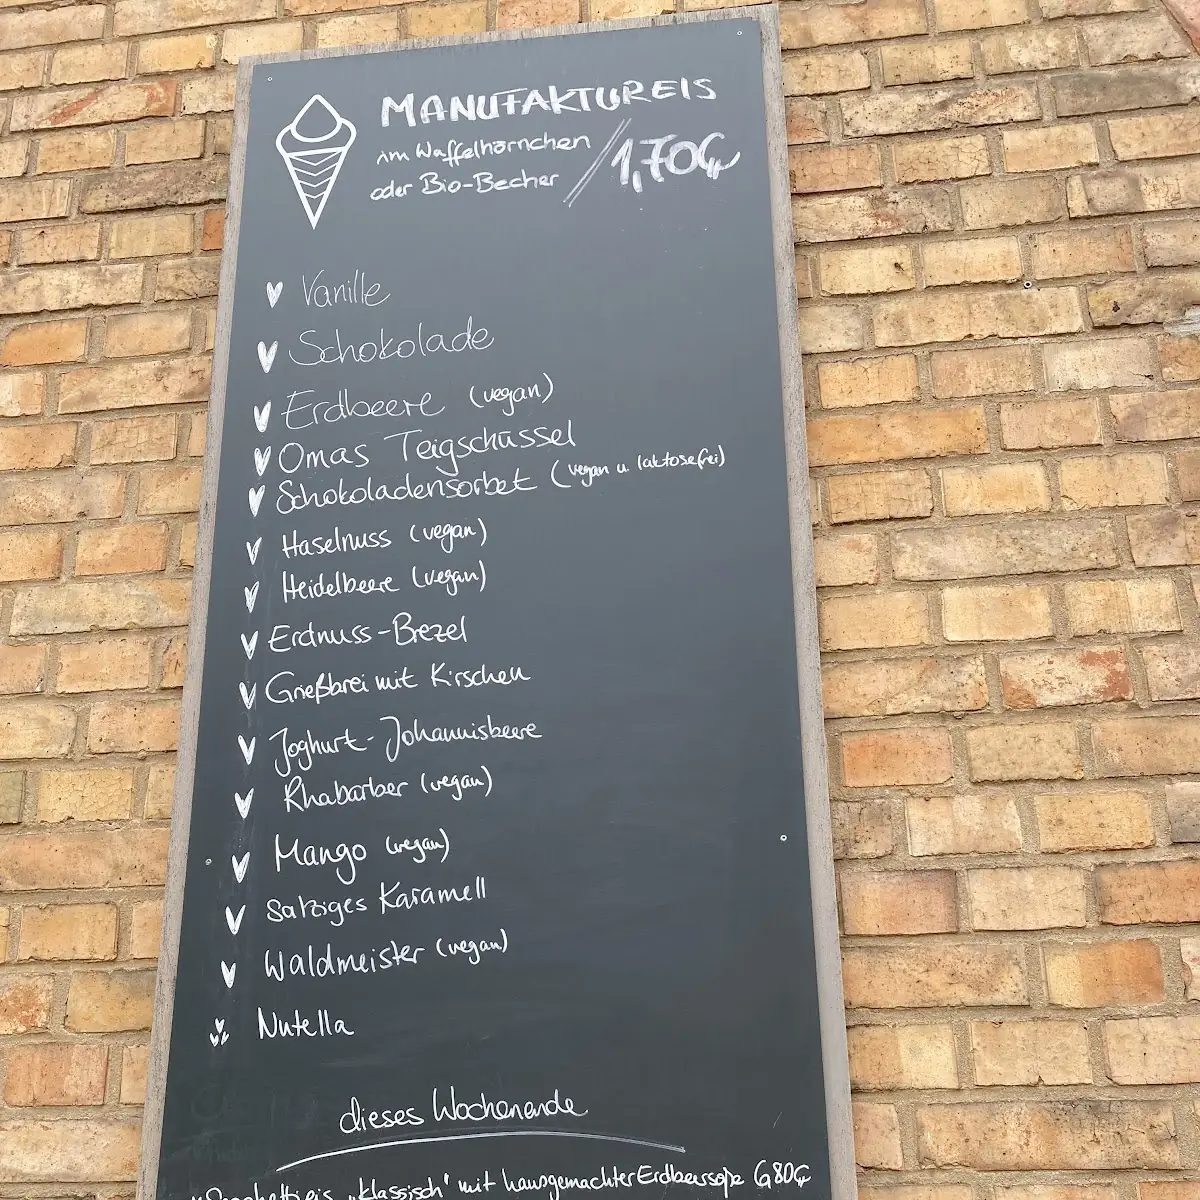 MANUFAKTUREIS
im Waffelhörnchen
oder Bio-Becher / 1,70€
Vanille
Schokolade
Erdbeere (vegan)
Omas Teigschüssel
Schokoladensorbet (vegan u. laktosefrei)
Haselnuss (vegan)
Heidelbeere (vegan)
Erdnuss-Brezel
Grießbrei mit Kirschen
Joghurt-Johannisbeere
Rhabarber (vegan)
Mango (vegan)
Salziges Karamell
Waldmeister (vegan)
Nutella
dieses Wochenende
Spaghettieis „klassisch" mit hausgemachter Erdbeersoße 6,80€